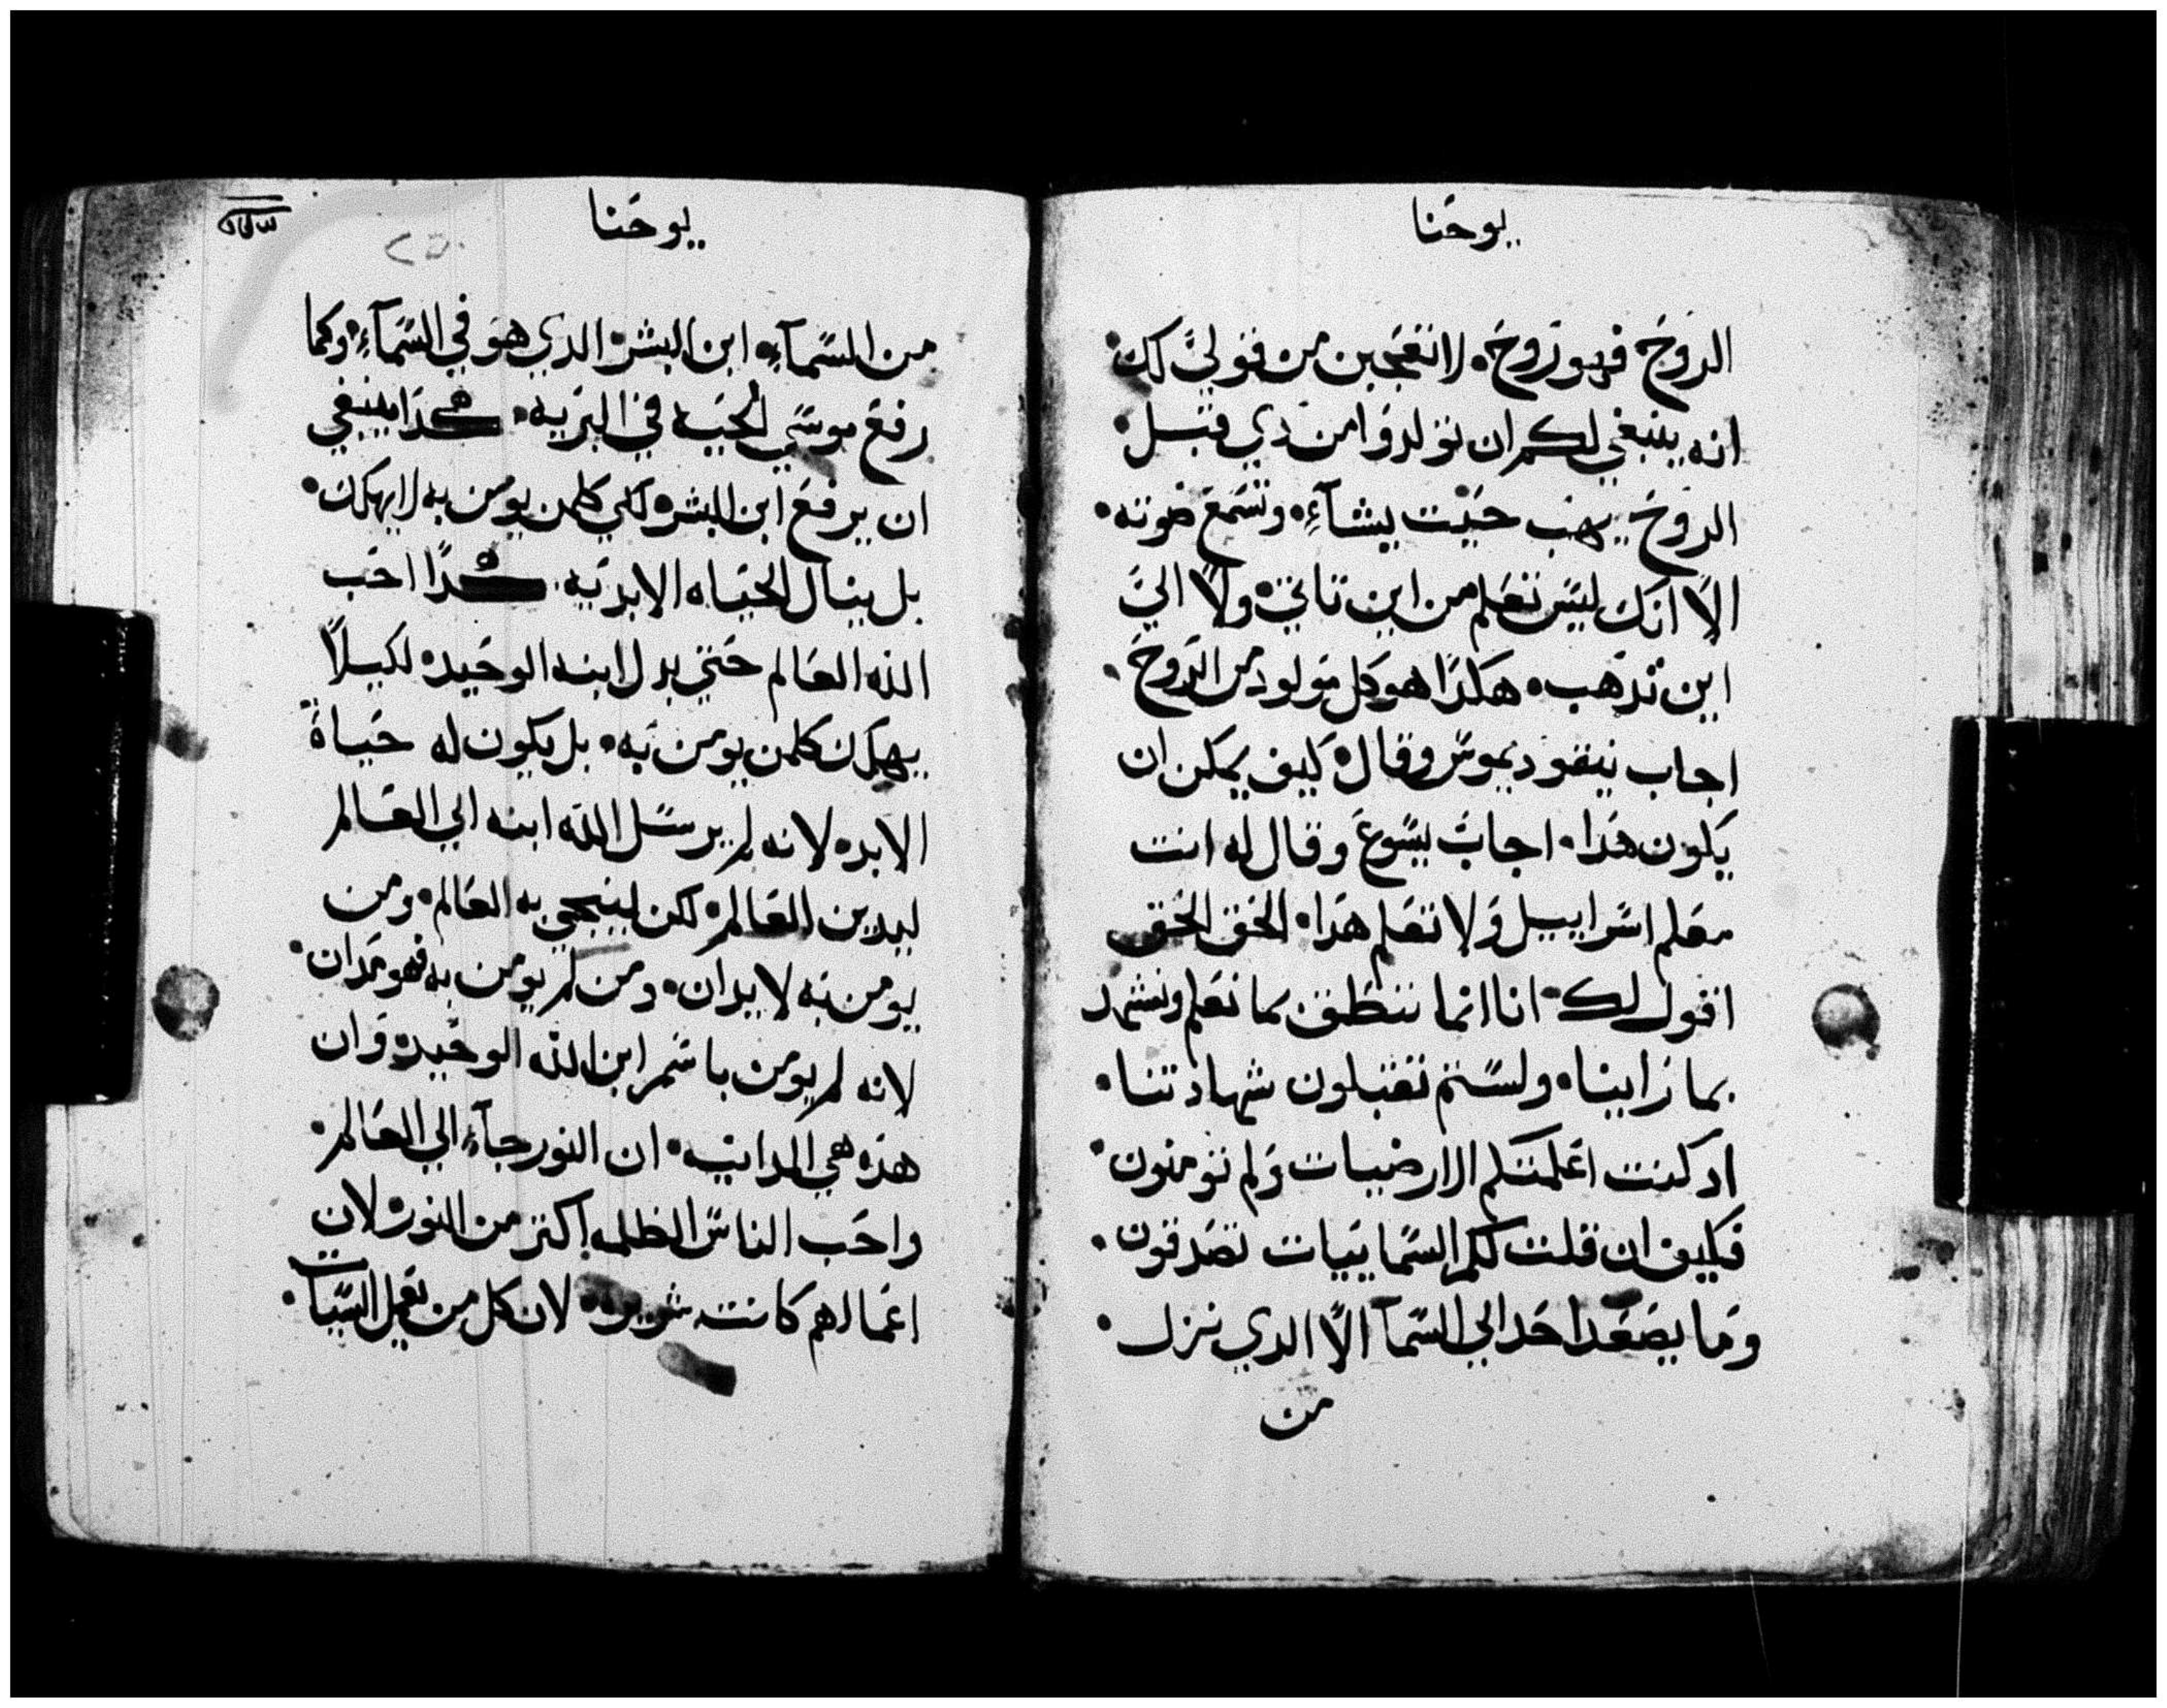 يوحنا
الروح فهو روح. لا تتعجبن من قولي لك.
انه ينبغي لكم ان تولدوا من دي قبل.
الروح يهب حيت يشآء. وتسمع صوته.
الاً انك ليس تعلم من اين تاتي. ولا الي
اين تدهب. هكدا هو كل مولود من الروح.
اجاب نيقوديموس وقال. كيف يمكن ان
يكون هدا. اجاب يسوع وقال له انت
معلم اسراييل ولا تعلم هدا. الحق الحق
اقول لك. اننا انما ننطق بما نعلم ونشهد
بما راينا. ولستم تقبلون شهادتنا.
اد كنت اعلمتكم الارضيات ولم تومنون.
فكيف ان قلت لكم السماييات تصدقون.
وما يصعد احد الي السمآ الاً الدي نزل.
من
يوحنا
من السمآء. ابن البشر الدي هو في السمآء. وكما
رفع موسي الحيه في البريه. هكدا ينبغي
ان يرفع ابن البشر. لكي كلمن يومن به لا يهلك.
بل ينال الحياه الابديه. هكداً احب
الله العالم حتي بدل ابنه الوحيد. لكيلاً
يهلك كلمن يومن به. بل يكون له حياة
الابد. لانه لم يرسل الله ابنه الي العالم
ليدين العالم. لكن لينجي به العالم. ومن
يومن به لا يدان. ومن لم يومن به فهو مدان.
لانه لم يومن باسم ابن الله الوحيد. وان
هده هي المداينه. ان النور جآء الي العالم.
واحب الناس الظلمه اكتر من النور. لان
اعمالهم كانت شريره. لان كل من يعمل السيات.